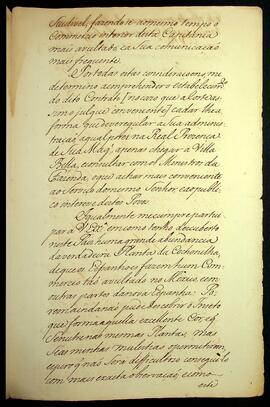 fazendo se ao mesmo tempo o
Commercio interior desta Capitania
mais avultado, e a sua comunicação
mais frequente.
Por todas estas consideraçoens, me
determino a emprehender o estabelecim.to
do dito Contrato
julgue conveniente,
forma que deve regular a sua admnis
tração, a qual porei na Real Prezença
de Sua Mag.e apenas chegar a Villa
Bella, e consultar com o Ministro da
Fazenda, o que achar mais conveniente
ao Serviço do mesmo Senhor, e ao publi
co interece deste Povo.
Igualmente me cumpre partici
par a V. Ex.a em como tenho descuberto
neste Paiz huma grande abundancia
da verdadeira Planta da Cochonilha,
de que os Espanhoes fazem hum Com
mercio tão avultado no Mexico, e em
outras partes da nova Espanha. Po
rem ainda não pude descobrir o Inseto
que forma aquella excellente Cor, e q
se nutre nas mesmas Plantas; mas
se as minhas molestias o permitirem
espero q não será dificultozo conseguilo
com mais exacta observação, e como
este